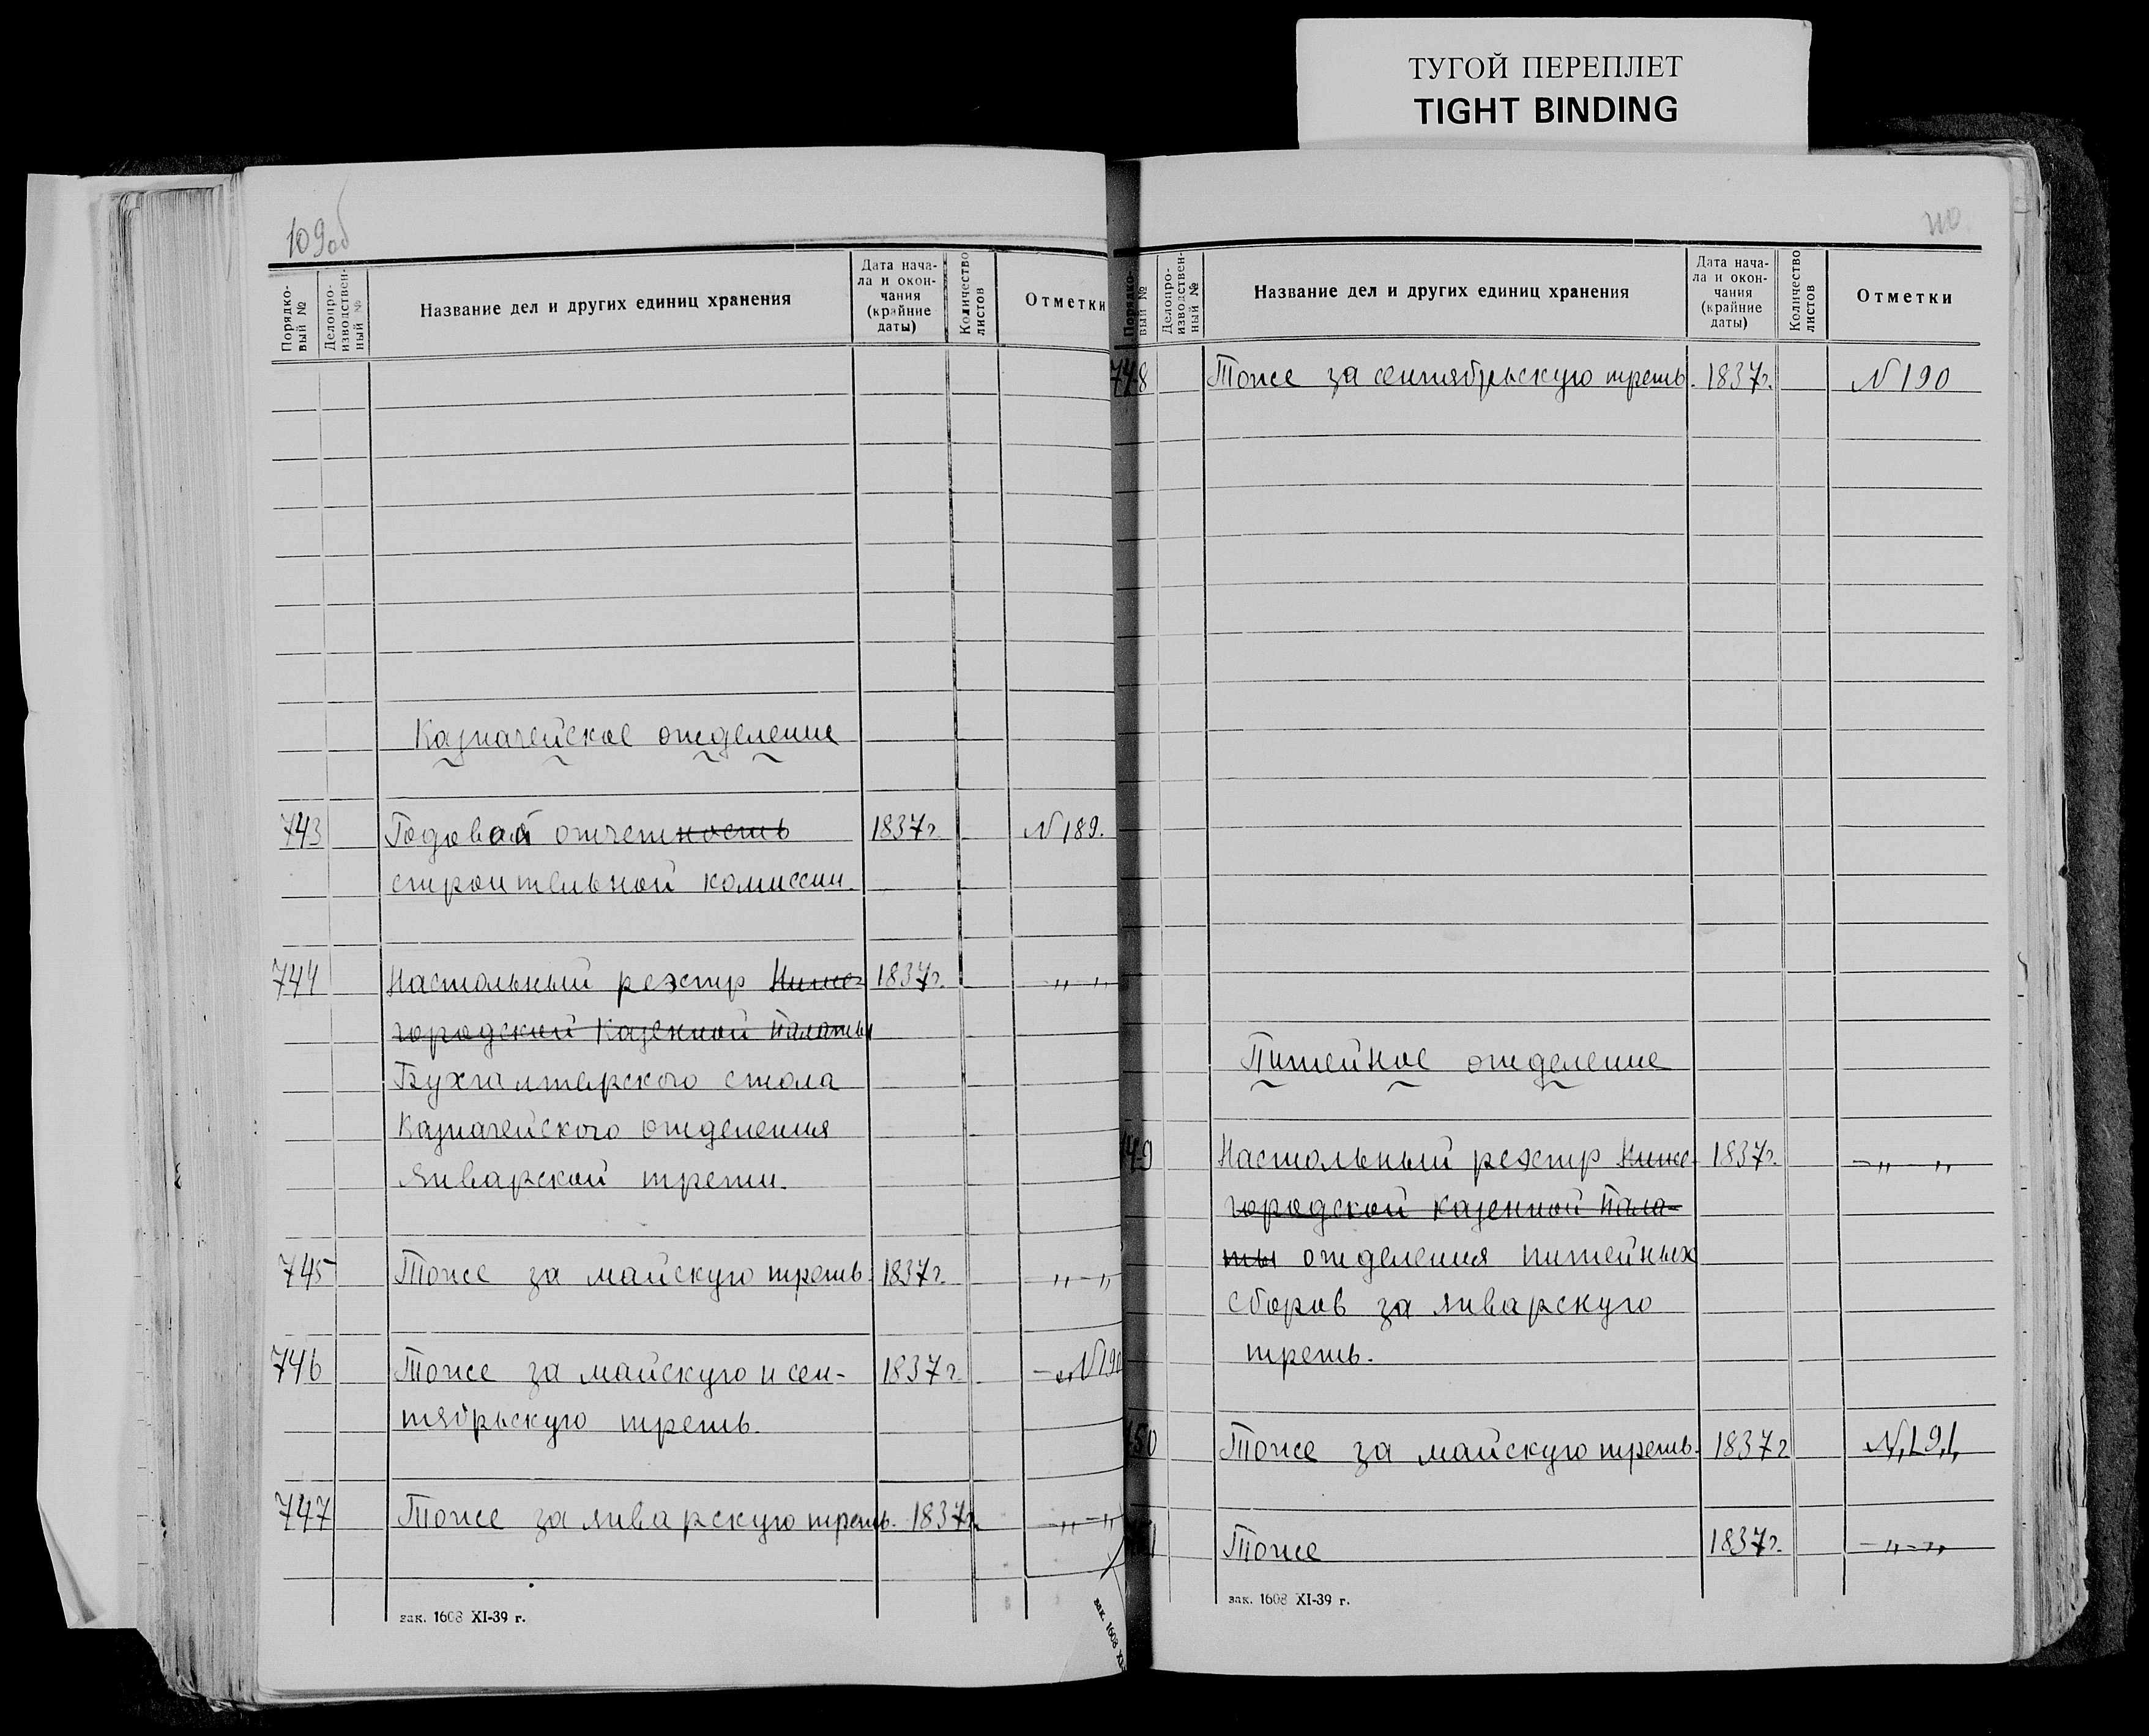 ТУГОЙ ПЕРЕПЛЕТ
TIGHT BINDING
109об
Порядко-
вый №
Делопро-
изводствен-
ный №
Название дел и других единиц хранения
Дата нача-
ла и окон-
чания
(крайние
даты)
Количество
листов
Отметки
Казначейское отделение
743 Годовой отчетность 1837г. N 189.
строительной комиссии.
744 Настольный реэстр Ниже- 1837г. -„-„
городской Казенной Палаты
Бухгалтерского стола
Казначейского отделения
январской трети.
745 Тоже за майскую треть. 1837г. -„-„
746 Тоже за майскую и сен- 1837г. N190
тябрьскую треть.
747 Тоже за январскую треть. 1837г. -„-„
зак. 1608 XI-39 г.
зак. 1608 XI-
110
Порядко-
вый №
Делопро-
изводствен-
ный №
Название дел и других единиц хранения
Дата нача-
ла и окон-
чания
(крайние
даты)
Количество
листов
Отметки
748 Тоже за сентябрьскую треть. 1837г. N 190
Питейное отделение
749 Настольный реэстр Ниже- 1837г. -„-„
городской казенной Пала-
ты отделения питейных
сборов за январскую
треть.
750 Тоже за майскую треть. 1837г N 191
Тоже 1837г. -„-„
зак. 1608 XI-39 г.